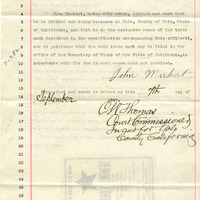 John Markert, being duly sworn, deposes and says that
he is located and doing business at Yolo, County of Yolo, State
of California, and that he is the exclusive owner of the trade
mark described in the specification accompanying this affidavit,
and he petitions that the said trade mark may be filed in the
office of the Secretary of State of the State of California, in
accordance with the law in such cases made and provided.
John Markert
Subscribed and sworn to before me this 7th day of
September
C. W. Thomas
Court Commissioner
in and for Yolo
County California